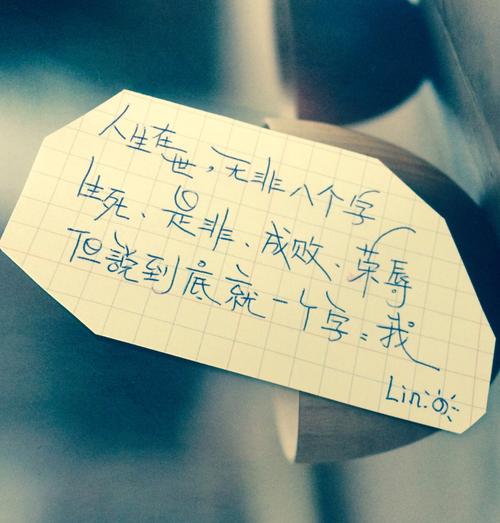 人生在世，无非八个字
生死、是非、成败、荣辱
但説到底就一个字：我
Lin: